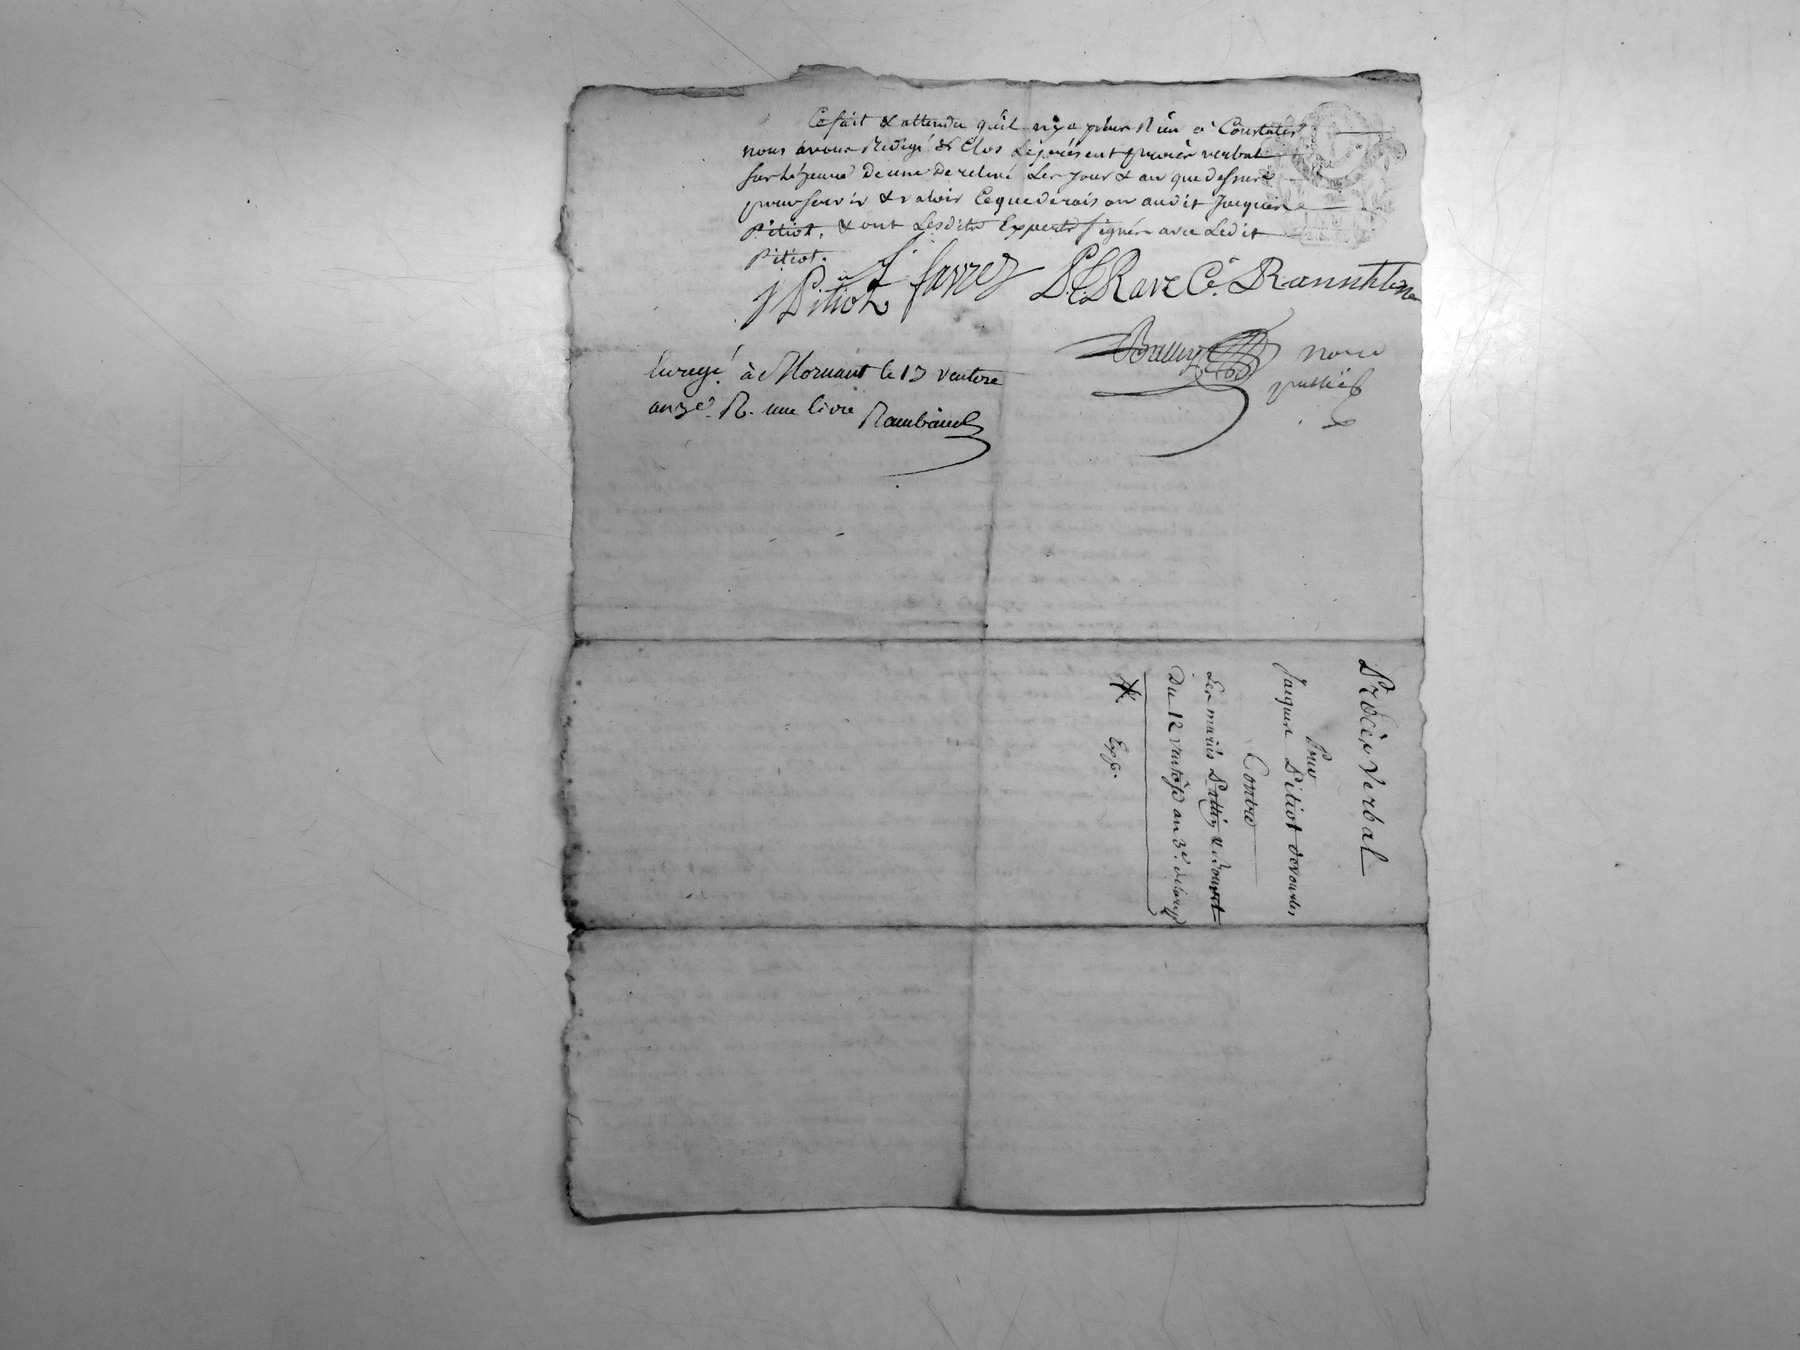 Ce fait & attendu qu'il n'y a plus rien a Constater
nous avons Redigé & Clos Le présent procès verbal
sur Les jour & an que dessus
pour servir & valoir Ce que de rais on audit Jacques
Pitiot, & ont Lesdits Experts signés avec Ledit
Pitiot.
J Pitiot J favre Rave
not.re
public
Enregé. à Mornant le 13 ventose
an 3e. R. une livre Rambaud
Procès Verbal
Pour
Jacques Pitiot
Contre
Les mariés
Du 12 Ventose an 3e.
Exp.